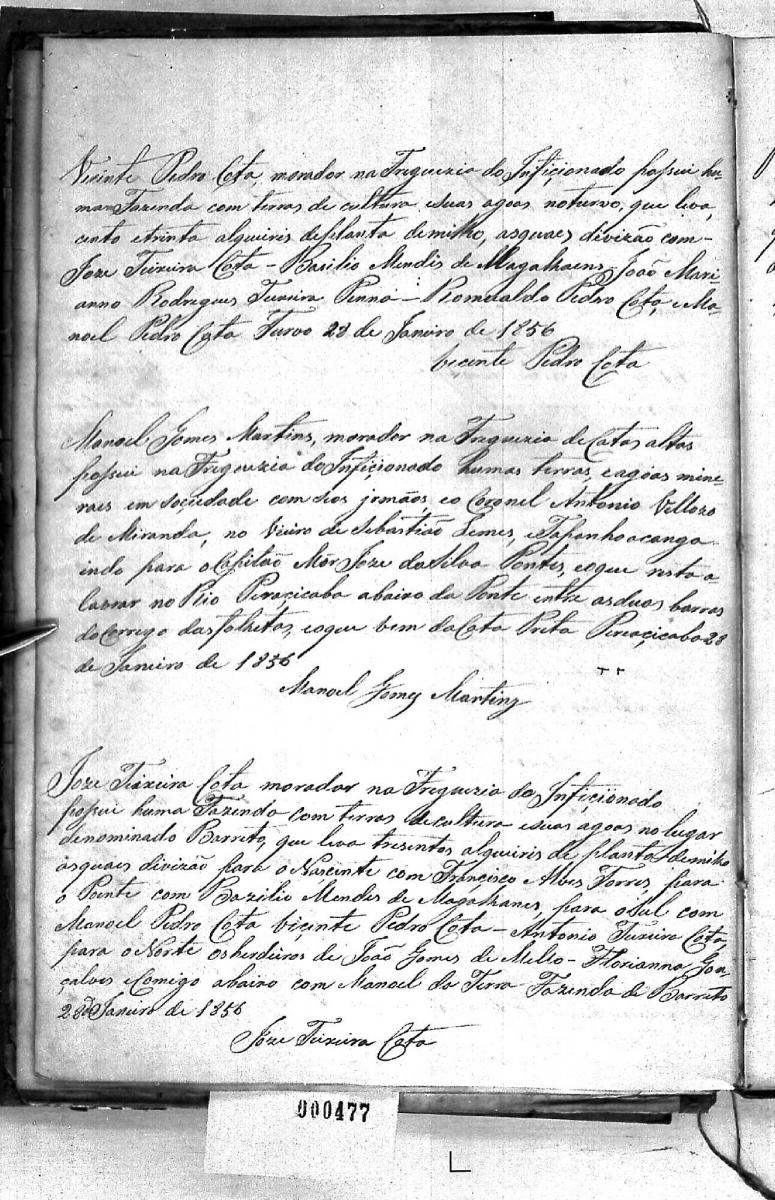 Vicente Pedro Cota, morador na Freguezia do Inficionado possui hu-
ma Fazenda com terras de cultura e suas agoas no turvo, que leva
cento e trinta alqueiris de planta de milho, as quaes divizão com-
Joze Teixeira Cota - Basilio Mendis de Magalhaens, João Mari-
anno Rodrigues Teixeira Penna - Romualdo Pedro Cota, e Ma-
noel Pedro Cota Turvo 28 de Janeiro de 1856
Viçente Pedro Cota
Manoel Gomes Martins, morador na Freguezia de Catas altas
possui na Freguezia do Inficionado humas terras, e agoas mine-
raes em sociedade com seos jrmãos, e o Coronel Antonio Vellozo
de Miranda, no Vieiro de Sebastião Lemes, e Tapanhoacanga
indo para o Capitão Mór Joze da Silva Pontes, e o que resta a
lavrar no Rio Peraçicaba abaixo da Ponte entre as duas barras
do Corrego das folhetas, e o que vem da Cata Preta Peraçicaba 28
de Janeiro de 1856
Manoel Gomes Martins
Joze Teixeira Cota morador na Freguezia do Inficionado
possui huma Fazenda com terras de cultura e suas agoas no lugar
denominado Barreto, que leva tresentos alqueiris de planta de milho
as quaes divizão para o Nascente com Françisco Alves Torres, para
o Poente com Bazilio Mendes de Magalhaens, para o Sul com
Manoel Pedro Cota Viçente Pedro Cota - Antonio Teixeira Cota,
para o Norte os herdeiros de João Gomes de Mello - Florianna Gon-
çalves e Comego abaixo com Manoel do Terra Fazenda do Barreto
28 de Janeiro de 1856
Joze Teixeira Cota
000477